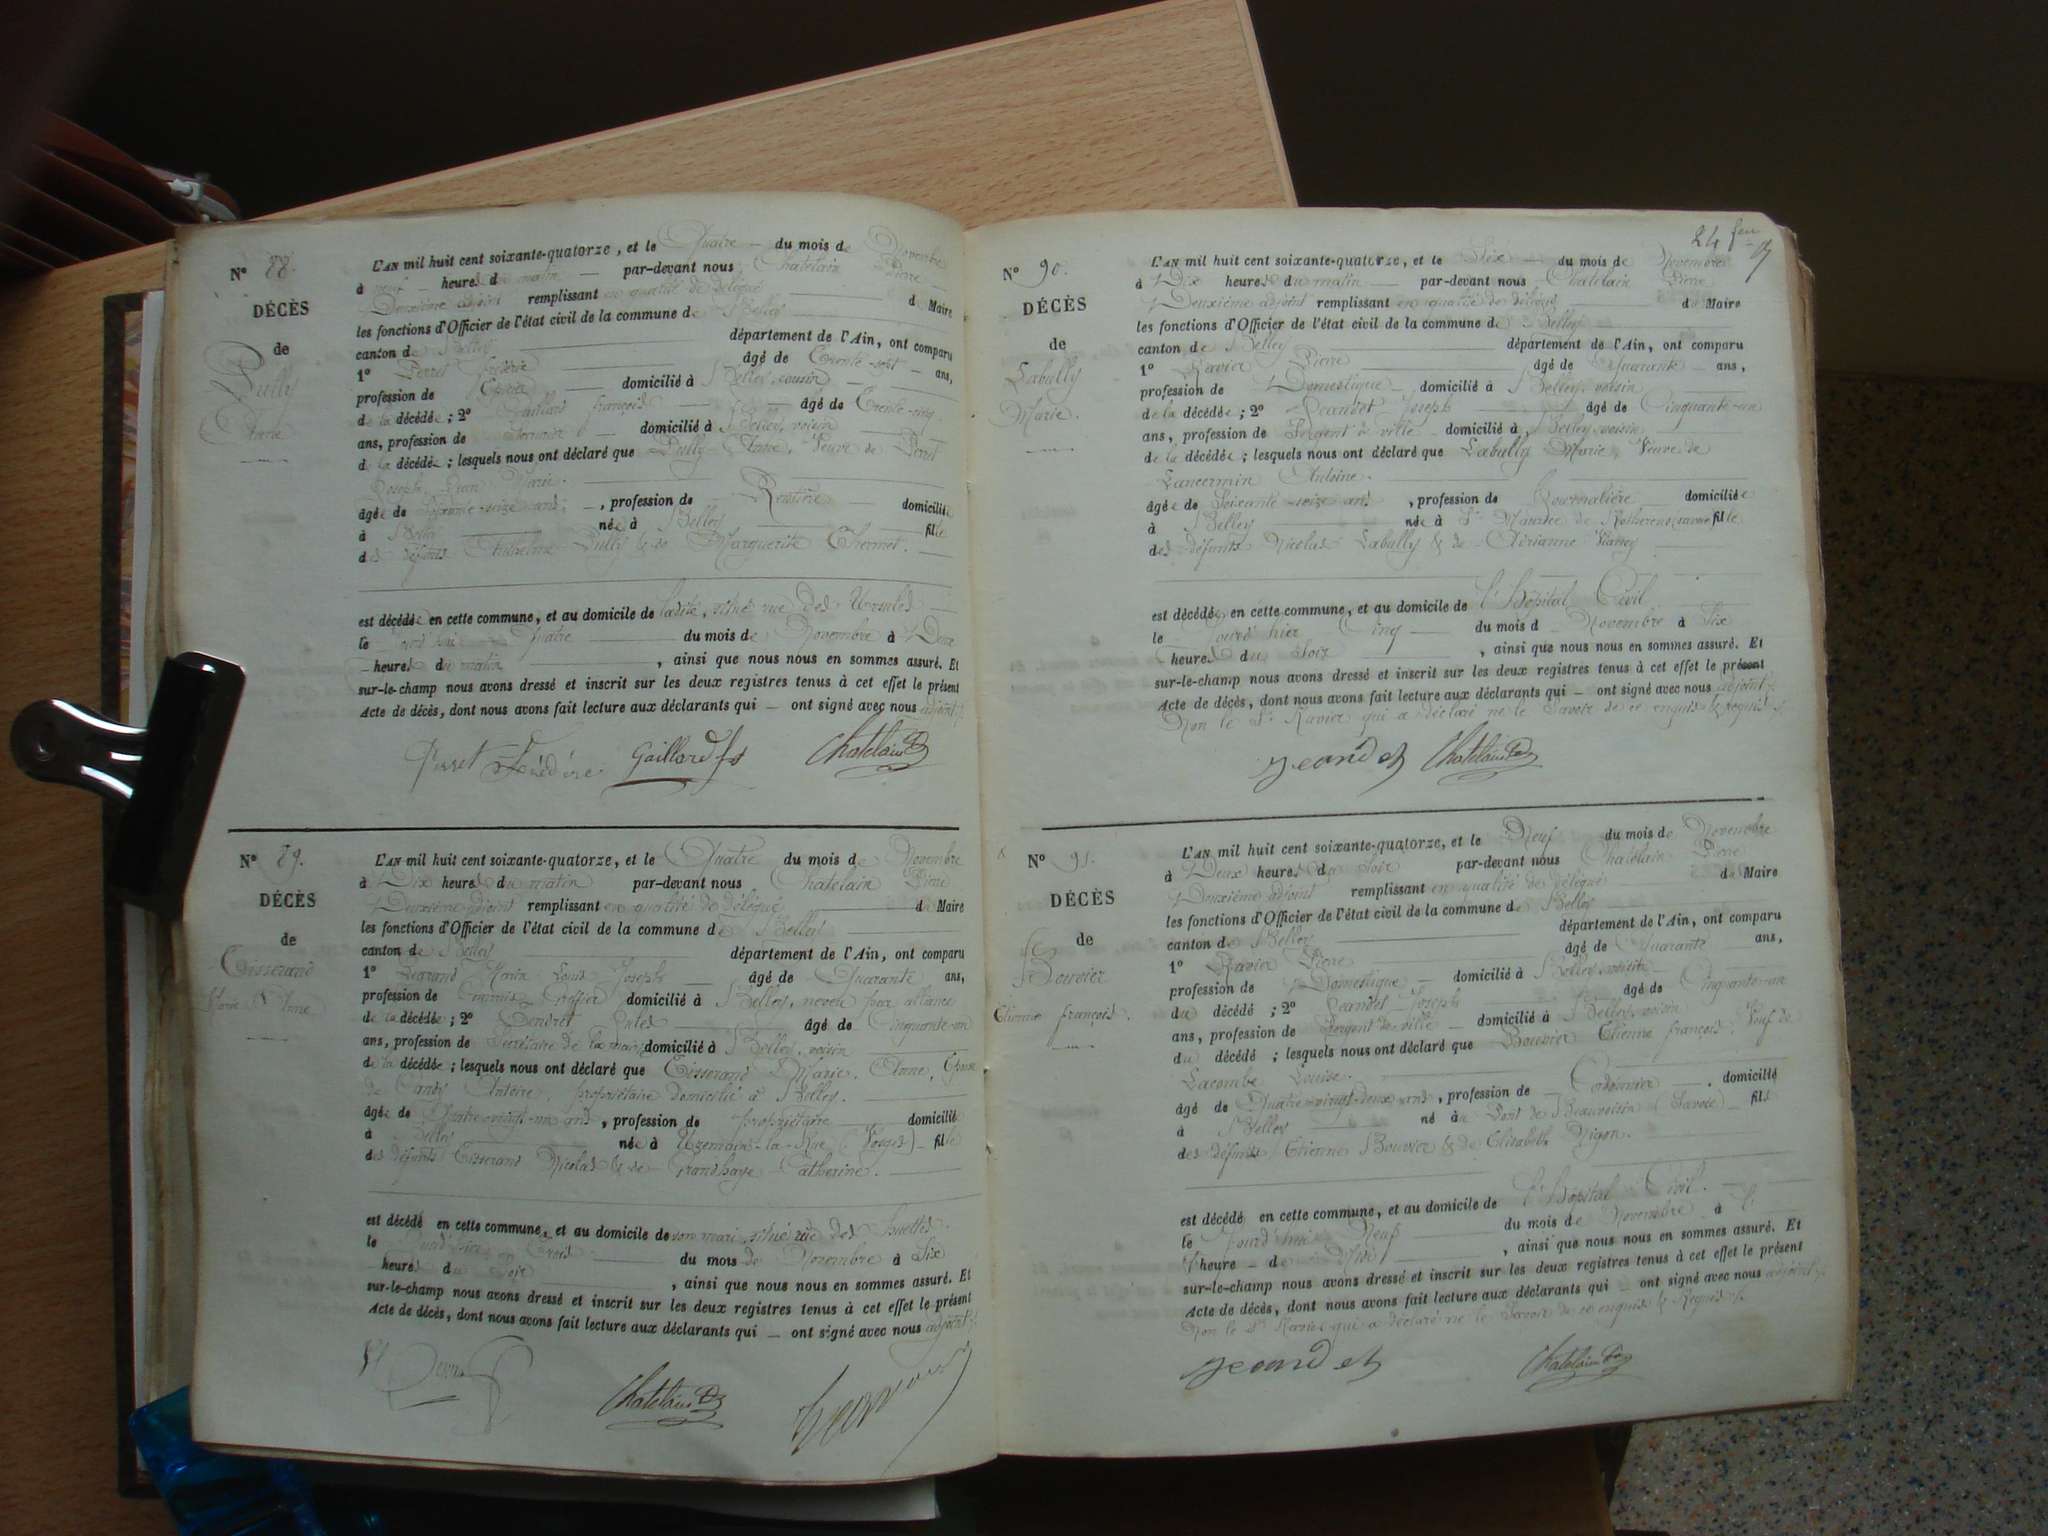 N° 88.
DÉCÈS
de
Pully
Anne
L'AN mil huit cent soixante-quatorze, et le Quatre du mois de Novembre
à neuf heures du matin par-devant nous Chatelain Pierre
Deuxième adjoint remplissant en qualité de délégué du Maire
les fonctions d'Officier de l'état civil de la commune de Belley
canton de Belley département de l'Ain, ont comparu
1° Perret âgé de Trente-sept ans,
profession de domicilié à Belley, cousin
de la décédée; 2° Gaillard françois âgé de Trente-cinq
ans, profession de domicilié à Belley, voisin
de la décédée; lesquels nous ont déclaré que Pully Anne, Veuve de Perret
Joseph Jean Marie.
âgée de Soixante-seize ans, profession de Rentière domiciliée
à Belley née à Belley fille
des défunts Anthelme Pully & de Marguerite Thermet.
est décédée en cette commune, et au domicile de ladite, situé rue des
le jourd'hui Quatre du mois de Novembre à Deux
heures du matin, ainsi que nous nous en sommes assuré. Et
sur-le-champ nous avons dressé et inscrit sur les deux registres tenus à cet effet le présent
Acte de décès, dont nous avons fait lecture aux déclarants qui ont signé avec nous adjoint.
Perret Gaillard fs Chatelain
N° 89.
DÉCÈS
de
Tisserand
Marie Anne
L'AN mil huit cent soixante-quatorze, et le Quatre du mois de Novembre
à Dix heures du matin par-devant nous Chatelain Pierre
Deuxième adjoint remplissant en qualité de délégué du Maire
les fonctions d'Officier de l'état civil de la commune de Belley
canton de Belley département de l'Ain, ont comparu
1° Marin Louis Joseph âgé de Quarante ans,
profession de Commis Greffier domicilié à Belley, neveu par alliance
de la décédée; 2° âgé de Cinquante-un
ans, profession de Secrétaire de la mairie domicilié à Belley, voisin
de la décédée; lesquels nous ont déclaré que Tisserand Marie Anne, Epouse
de Antoine, propriétaire domicilié à Belley.
âgée de Quatre-vingt-un ans, profession de propriétaire domiciliée
à Belley née à Uzemain-la-Rue (Vosges) fille
des défunts Tisserand Nicolas & de Grandhaye Catherine.
est décédé en cette commune, et au domicile de son mari, situé rue des
le jourd'hier Trois du mois de Novembre à Six
heures du soir, ainsi que nous nous en sommes assuré. Et
sur-le-champ nous avons dressé et inscrit sur les deux registres tenus à cet effet le présent
Acte de décès, dont nous avons fait lecture aux déclarants qui ont signé avec nous adjoint.
Chatelain
24
N° 90.
DÉCÈS
de
Labully
Marie.
L'AN mil huit cent soixante-quatorze, et le Six du mois de Novembre
à Dix heures du matin par-devant nous Chatelain Pierre
Deuxième adjoint remplissant en qualité de délégué du Maire
les fonctions d'Officier de l'état civil de la commune de Belley
canton de Belley département de l'Ain, ont comparu
1° Ravier Pierre âgé de Quarante ans,
profession de Domestique domicilié à Belley, voisin
de la décédée; 2° Jeandet Joseph âgé de Cinquante-un
ans, profession de Sergent de ville domicilié à Belley, voisin
de la décédée; lesquels nous ont déclaré que Labully Marie, Veuve de
Lancermin Antoine.
âgée de Soixante-seize ans, profession de Journalière domiciliée
à Belley née à St Maurice de Rotherens (Savoie) fille
des défunts Nicolas Labully & de Vianey
est décédée en cette commune, et au domicile de l'Hôpital Civil
le jourd'hier Cinq du mois d Novembre à Six
heures du soir, ainsi que nous nous en sommes assuré. Et
sur-le-champ nous avons dressé et inscrit sur les deux registres tenus à cet effet le présent
Acte de décès, dont nous avons fait lecture aux déclarants qui ont signé avec nous adjoint.
Non le Sr Ravier qui a déclaré ne le Savoir de ce enquis & requis.
Jeandet Chatelain
N° 91.
DÉCÈS
de
Bouvier
Etienne françois.
L'AN mil huit cent soixante-quatorze, et le Neuf du mois de Novembre
à Deux heures du soir par-devant nous Chatelain Pierre
Deuxième adjoint remplissant en qualité de délégué du Maire
les fonctions d'Officier de l'état civil de la commune de Belley
canton de Belley département de l'Ain, ont comparu
1° Ravier Pierre âgé de Quarante ans,
profession de Domestique domicilié à Belley, voisin
du décédé; 2° Jeandet Joseph âgé de Cinquante-un
ans, profession de Sergent de ville domicilié à Belley, voisin
du décédé; lesquels nous ont déclaré que Bouvier Etienne françois, Veuf de
Lacombe Louise.
âgé de Quatre-vingt-deux ans, profession de Cordonnier domicilié
à Belley né au Pont de Beauvoisin (Savoie) fils
des défunts Etienne Bouvier & de Elisabeth Nigon.
est décédé en cette commune, et au domicile de l'Hôpital Civil.
le jourd'hui Neuf du mois de Novembre à
heure de Midi, ainsi que nous nous en sommes assuré. Et
sur-le-champ nous avons dressé et inscrit sur les deux registres tenus à cet effet le présent
Acte de décès, dont nous avons fait lecture aux déclarants qui ont signé avec nous adjoint.
Non le Sr Ravier qui a déclaré ne le Savoir de ce enquis & Requis.
Jeandet Chatelain